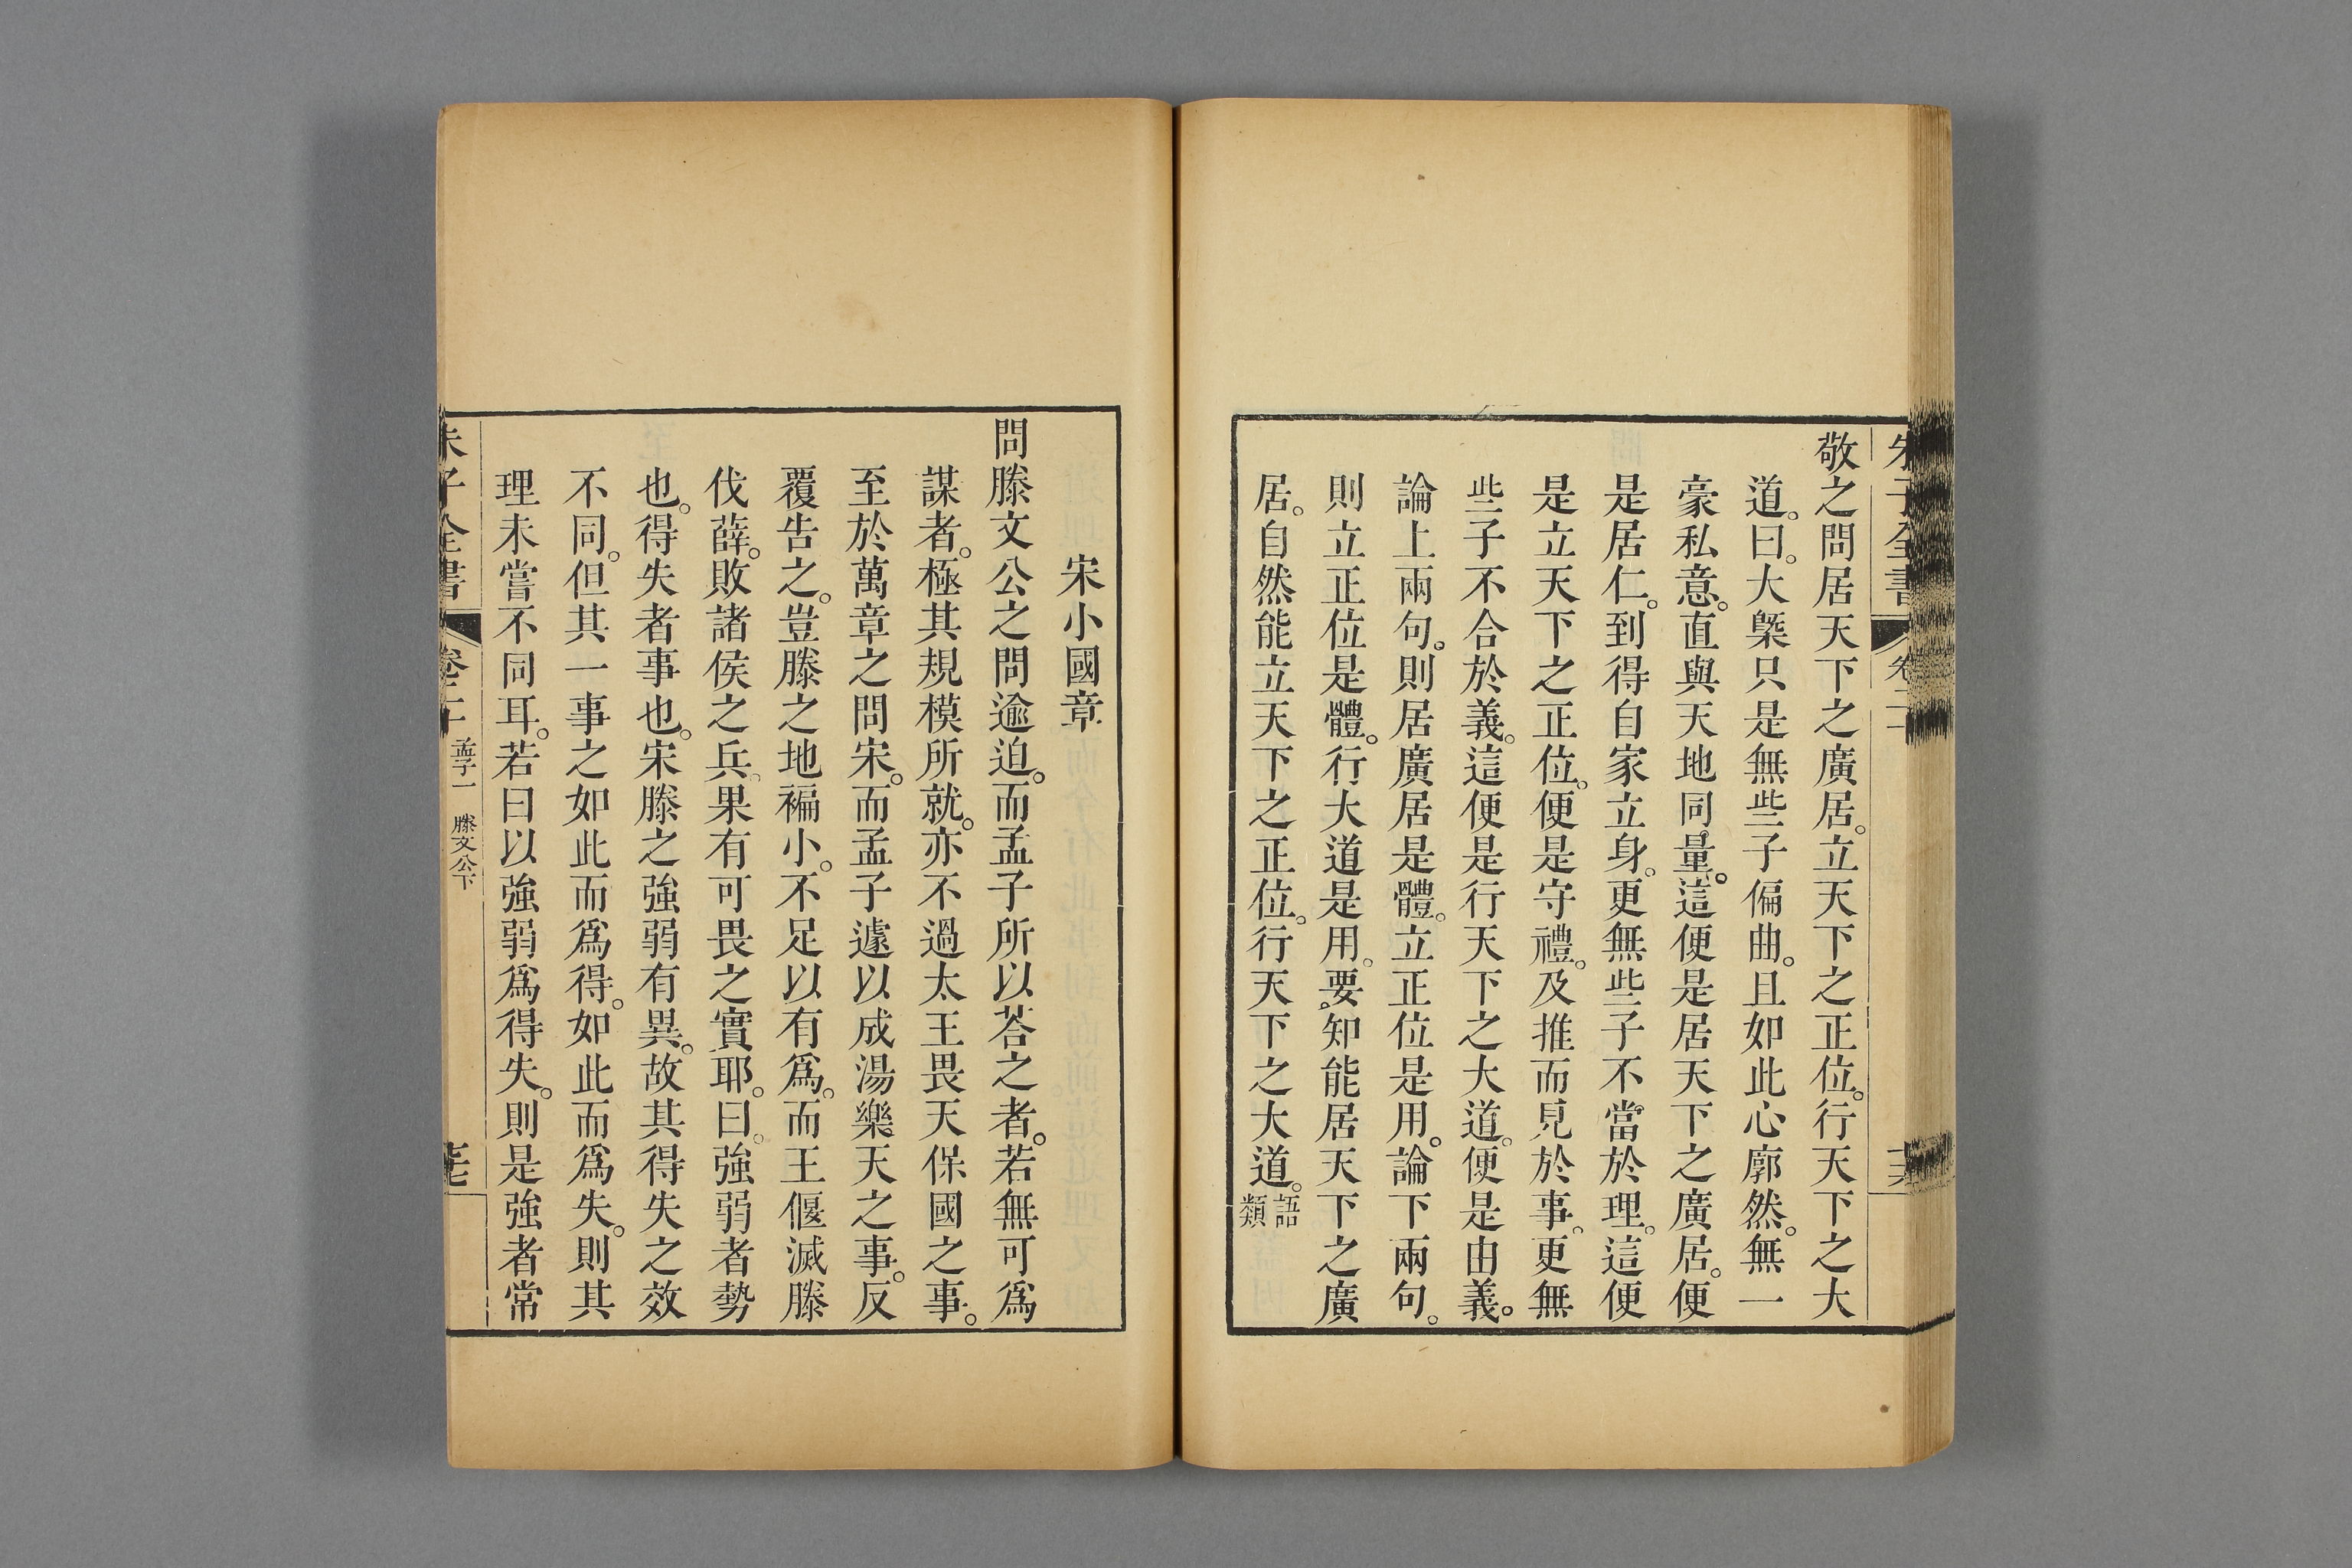 朱子全書 卷二十
敬之問居天下之廣居。立天下之正位。行天下之大
道。曰。大槩只是無些子偏曲。且如此心廓然。無一
豪私意。直與天地同量。這便是居天下之廣居。便
是居仁。到得自家立身。更無些子不當於理。這便
是立天下之正位。便是守禮。及推而見於事。更無
些子不合於義。這便是行天下之大道。便是由義。
論上兩句。則居廣居是體。立正位是用。論下兩句。
則立正位是體。行大道是用。要知能居天下之廣
居。自然能立天下之正位。行天下之大道。語類
宋小國章
問滕文公之問逾迫。而孟子所以荅之者。若無可爲
謀者。極其規模所就。亦不過太王畏天保國之事。
至於萬章之問宋。而孟子遽以成湯樂天之事。反
覆告之。豈滕之地褊小。不足以有爲。而王偃滅滕
伐薛。敗諸侯之兵。果有可畏之實耶。曰。強弱者勢
也。得失者事也。宋滕之強弱有異。故其得失之效
不同。但其一事之如此而爲得。如此而爲失。則其
理未嘗不同耳。若曰以強弱爲得失。則是強者常
朱子全書 卷二十 孟子一 滕文公下